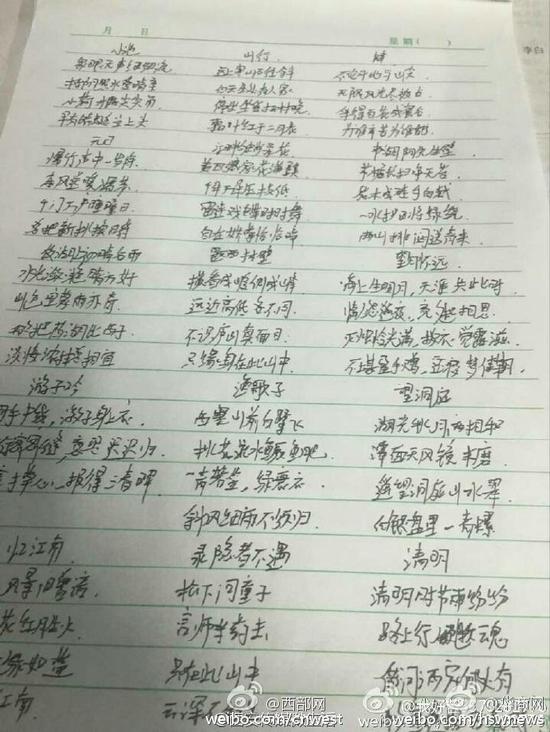 月 日
星期（ ）
小池
泉眼无声惜细流
树阴照水爱晴柔
小荷才露尖尖角
早有蜻蜓立上头
元日
爆竹声中一岁除
春风送暖入屠苏
千门万户曈曈日
总把新桃换旧符
饮湖上初晴后雨
水光潋滟晴方好
山色空蒙雨亦奇
欲把西湖比西子
淡妆浓抹总相宜
游子吟
手中线，游子身上衣
密密缝，意恐迟迟归
寸草心，报得三春晖
忆江南
风景旧曾谙
花红胜火
绿如蓝
江南
山行
远上寒山石径斜
白云生处有人家
停车坐爱枫林晚
霜叶红于二月花
江畔独步寻花
黄四娘家花满蹊
千朵万朵压枝低
留连戏蝶时时舞
自在娇莺恰恰啼
题西林壁
横看成岭侧成峰
远近高低各不同
不识庐山真面目
只缘身在此山中
渔歌子
西塞山前白鹭飞
桃花流水鳜鱼肥
青箬笠，绿蓑衣
斜风细雨不须归
寻隐者不遇
松下问童子
言师采药去
只在此山中
云深不
蜂
不论平地与山尖
无限风光尽被占
采得百花成蜜后
为谁辛苦为谁甜
书湖阴先生壁
茅檐长扫净无苔
花木成畦手自栽
一水护田将绿绕
两山排闼送青来
望月怀远
海上生明月，天涯共此时
情人怨遥夜，竟夕起相思
灭烛怜光满，披衣觉露滋
不堪盈手赠，还寝梦佳期
望洞庭
湖光秋月两相和
潭面无风镜未磨
遥望洞庭山水翠
白银盘里一青螺
清明
清明时节雨纷纷
路上行人欲断魂
借问酒家何处有
李白
西部网
weibo.com/cnwest
华商网
weibo.com/hswnews